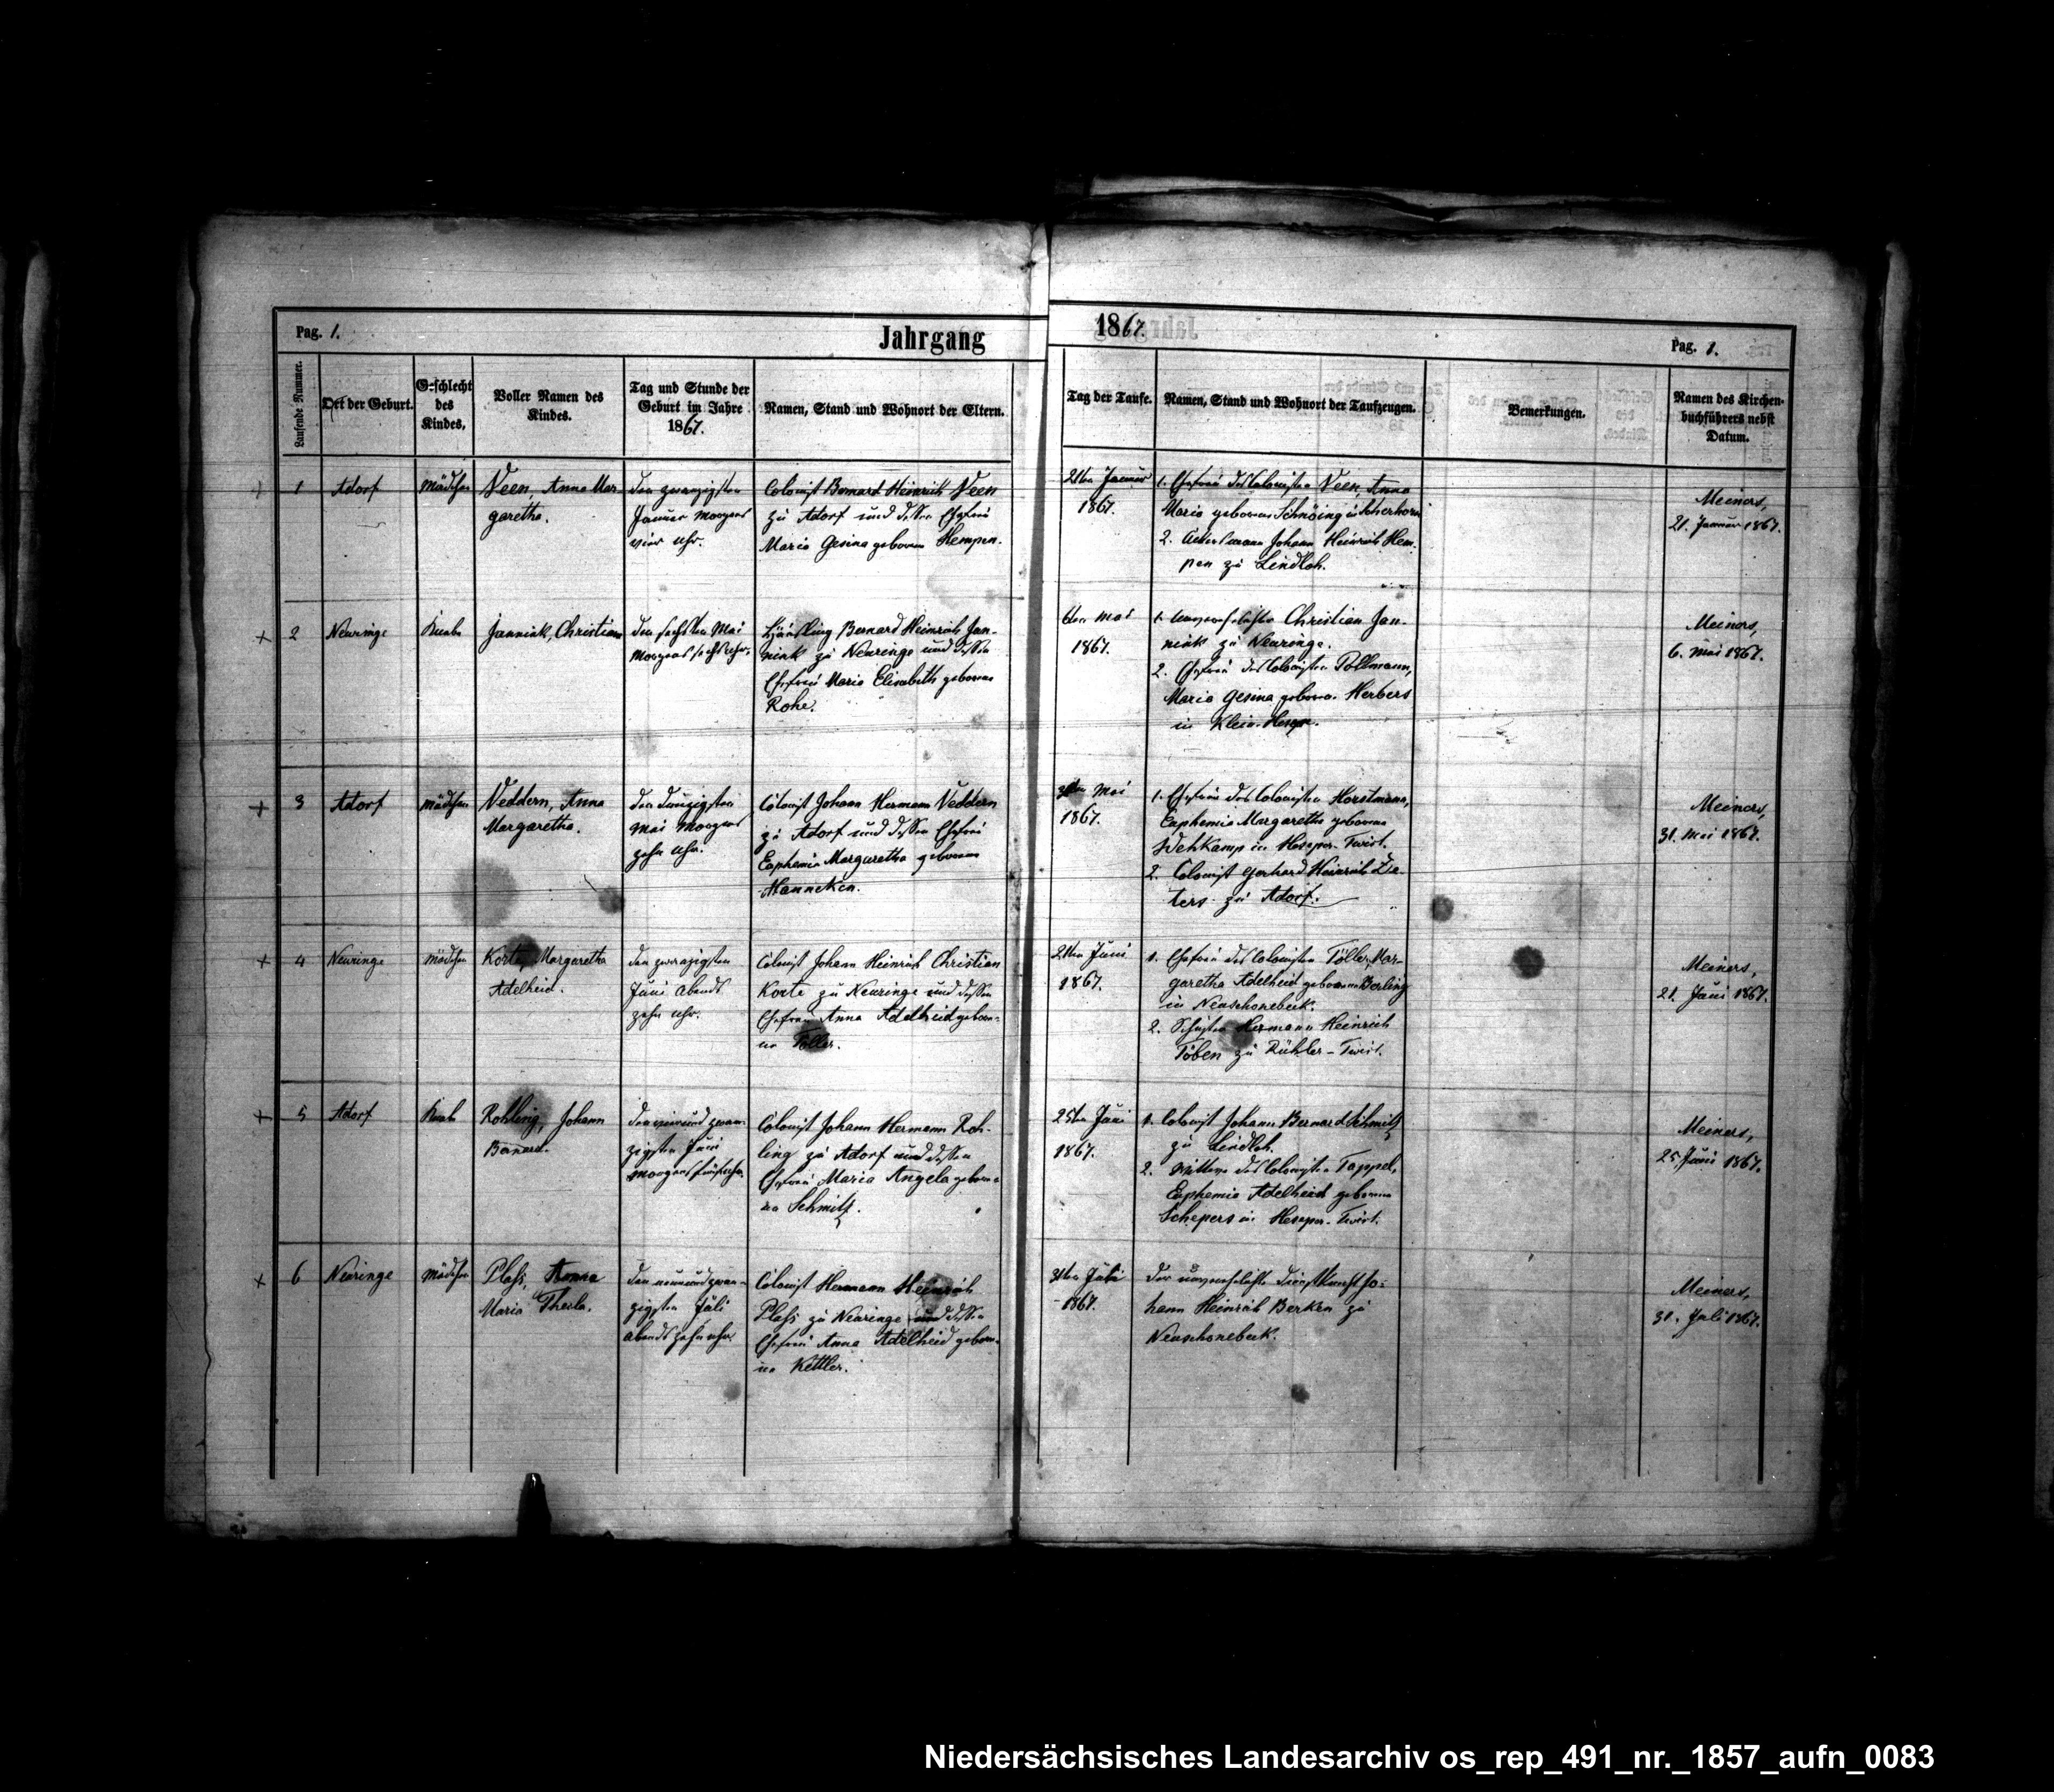 Pag. 1.
Jahrgang
1867.
Pag. 1.
Laufende Nummer.
Ort der Geburt.
Geschlecht
des
Kindes.
Voller Namen des
Kindes.
Tag und Stunde der
Geburt im Jahre
1867.
Namen, Stand und Wohnort der Eltern.
Tag der Taufe.
Namen, Stand und Wohnort der Taufzeugen.
Bemerkungen.
Namen des Kirchen-
buchführers nebst
Datum.
1
Adorf
Mädchen
Veen, Anna Mar
garetha.
den zwanzigsten
Januar Morgens
vier Uhr.
Colonist Bernard Heinrich Veen
zu Adorf und dessen Ehefrau
Maria Gesina geborene Hempen.
21ten Januar
1867.
1. Ehefrau des Colonisten Veen, Anna
Maria geborene Schnöing in Scherhorn
2. Ackersmann Johann Heinrich Hem-
pen zu Lindloh.
Meiners,
21. Januar 1867.
2
Neuringe
Knabe
Jannink, Christian
den sechsten Mai
Morgens sechs Uhr.
Häusling Bernard Heinrich Jan-
nink zu Neuringe und dessen
Ehefrau Maria Elisabeth geborene
Rohe.
6ten Mai
1867.
1. Unverehelichter Christian Jan-
nink zu Neuringe.
2. Ehefrau des Colonisten Pollmann,
Maria Gesina geborene Herbers
in Klein-Hesepe.
Meiners,
6. Mai 1867.
3
Adorf
Mädchen
Veddern, Anna
Margaretha.
den dreißigsten
Mai Morgens
zehn Uhr.
Colonist Johann Hermann Veddern
zu Adorf und dessen Ehefrau
Euphemia Margaretha geborene
Hanneken.
31ten Mai
1867.
1. Ehefrau des Colonisten Horstmann,
Euphemia Margaretha geborene
Wehkamp in Heseper-Twist.
2. Colonist Gerhard Heinrich De-
ters zu Adorf.
Meiners,
31. Mai 1867.
4
Neuringe
Mädchen
Korte, Margaretha
Adelheid.
den zwanzigsten
Juni Abends
zehn Uhr.
Colonist Johann Heinrich Christian
Korte zu Neuringe und dessen
Ehefrau Anna Adelheid gebore-
ne Töller.
21ten Juni
1867.
1. Ehefrau des Colonisten Töller, Mar-
garetha Adelheid geborene Berling
in Neuschonebeck.
2. Schuster Hermann Heinrich
Töben zu Rühler-Twist.
Meiners,
21. Juni 1867.
5
Adorf
Knabe
Rohling, Johann
Bernard.
den vierundzwan-
zigsten Juni
Morgens fünf Uhr.
Colonist Johann Hermann Roh-
ling zu Adorf und dessen
Ehefrau Maria Angela gebore-
ne Schmitz.
25ten Juni
1867.
1. Colonist Johann Bernard Schmitz
zu Lindloh.
2. Wittwe des Colonisten Tappel,
Euphemia Adelheid geborene
Schepers in Heseper-Twist.
Meiners,
25. Juni 1867.
6
Neuringe
Mädchen
Plass, Anna
Maria Thecla.
den neunundzwan-
zigsten Juli
Abends zehn Uhr.
Colonist Hermann Heinrich
Plass zu Neuringe und dessen
Ehefrau Anna Adelheid gebore-
ne Kettler.
31ten Juli
1867.
Der unverehelichte Dienstknecht Jo-
hann Heinrich Berken zu
Neuschonebeck.
Meiners,
31. Juli 1867.
Niedersächsisches Landesarchiv os_rep_491_nr._1857_aufn_0083